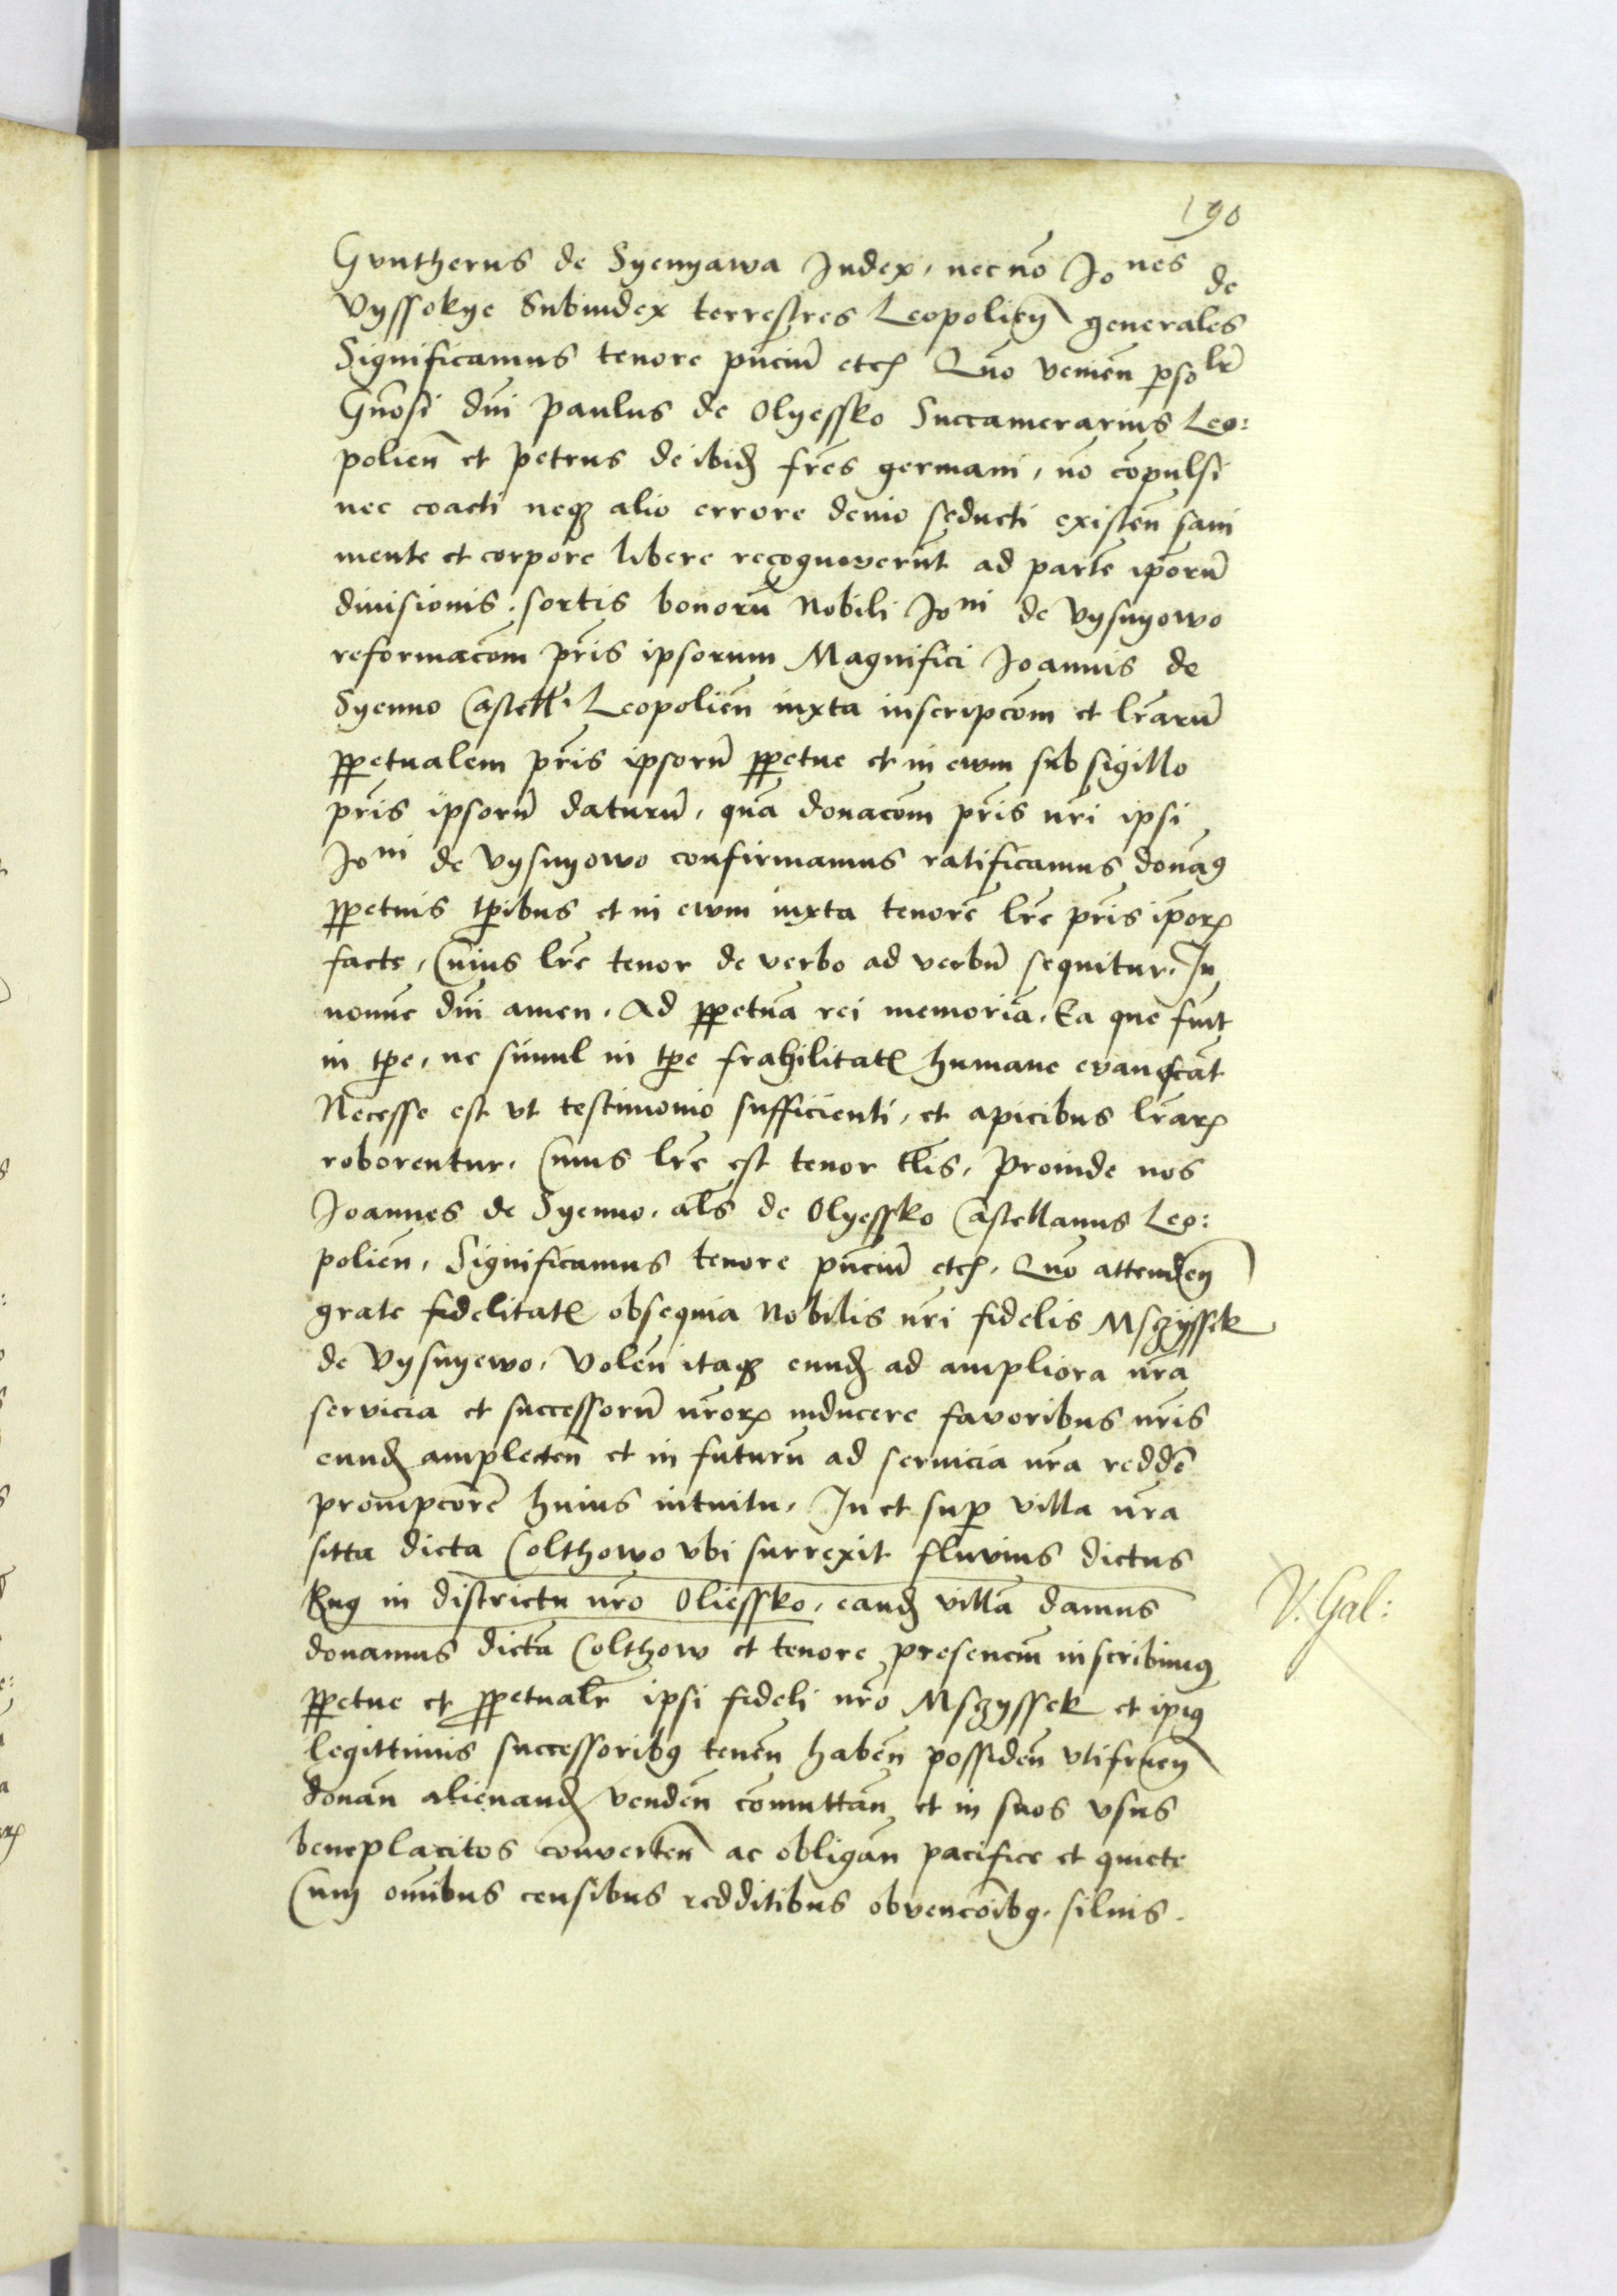 190
Gvntherus de Syenyawa Judex, nec nō Jones de
Vyssokye Subiudex terrestres Leopolien̄ generales
Significamus tenore pn̄ciū etc̄ Quō venien̄ psolr̄
Gn̄osi dn̄i Paulus de Olyessko Succamerarius Leo:
polien̄ et Petrus de ibid fr̄es germani, nō cōpulsi
nec coacti neqȝ alio errore deuio seducti existen̄ sani
mente et corpore libere recognoverūt ad partē ip̄orū
diuisionis. sortis bonorū Nobili Joni de Vysnyowo
reformacōm pr̄is ipsorum Magnifici Joannis de
Syenno Castell. Leopolien̄ iuxta inscripcōm et lr̄arū
ꝑpetualem pr̄is ipsorū ꝑpetue et in ewm sub sigillo
pr̄is ipsorū daturū, quā donacōm pr̄is nr̄i ipsi
Joni de Vysnyowo confirmamus ratificamus donaꝯ
ꝑpetuis tp̄ibus et in ewm iuxta tenorē lr̄e pr̄is ip̄oꝝ
facte, Cuius lr̄e tenor de verbo ad verbū sequitur, In
nomīe dn̄i amen. Ad ꝑpetuā rei memoriā. Ea que fiūt
in tp̄e, ne simul in tp̄e frahilitatꝭ humane evanescāt
Necesse est vt testimonio sufficienti, et apicibus lr̄aꝝ
roborentur. Cuius lr̄e est tenor tl̄is, Proinde nos
Joannes de Syenno, al̄s de Olyessko Castellanus Leo:
polien̄, Significamus tenore pn̄ciū etc̄. Quō attenden̄
grate fidelitatꝭ obsequia Nobilis nr̄i fidelis Msczyssek
de Vysnyewo, Volen̄ itaqȝ eund ad ampliora nr̄a
servicia et successorū nr̄oꝝ inducere favoribus nr̄is
eund amplecten̄ et in futurū ad seruicia nr̄a reddē
prompcōrē huius intuitu, In et sup̄ villa nr̄a
sitta dicta Colthowo vbi surrexit fluvius dictus
Bug in districtu nr̄o Oliessko, eand villā damus
donamus dictā Colthow et tenore presenciū inscribimꝯ
ꝑpetue et ꝑpetualr̄ ipsi fideli nr̄o Msczyssek et ipiꝯ
legittimis successoribꝯ tenen̄ haben̄ possiden̄ vtifruen̄
donan̄ alienand venden̄ cōmuttan̄ et in suos vsus
beneplacitos converten̄ ac obligan̄ pacifice et quiete
Cum om̄ibus censibus redditibus obvencōibꝯ. siluis.
V. Gal: